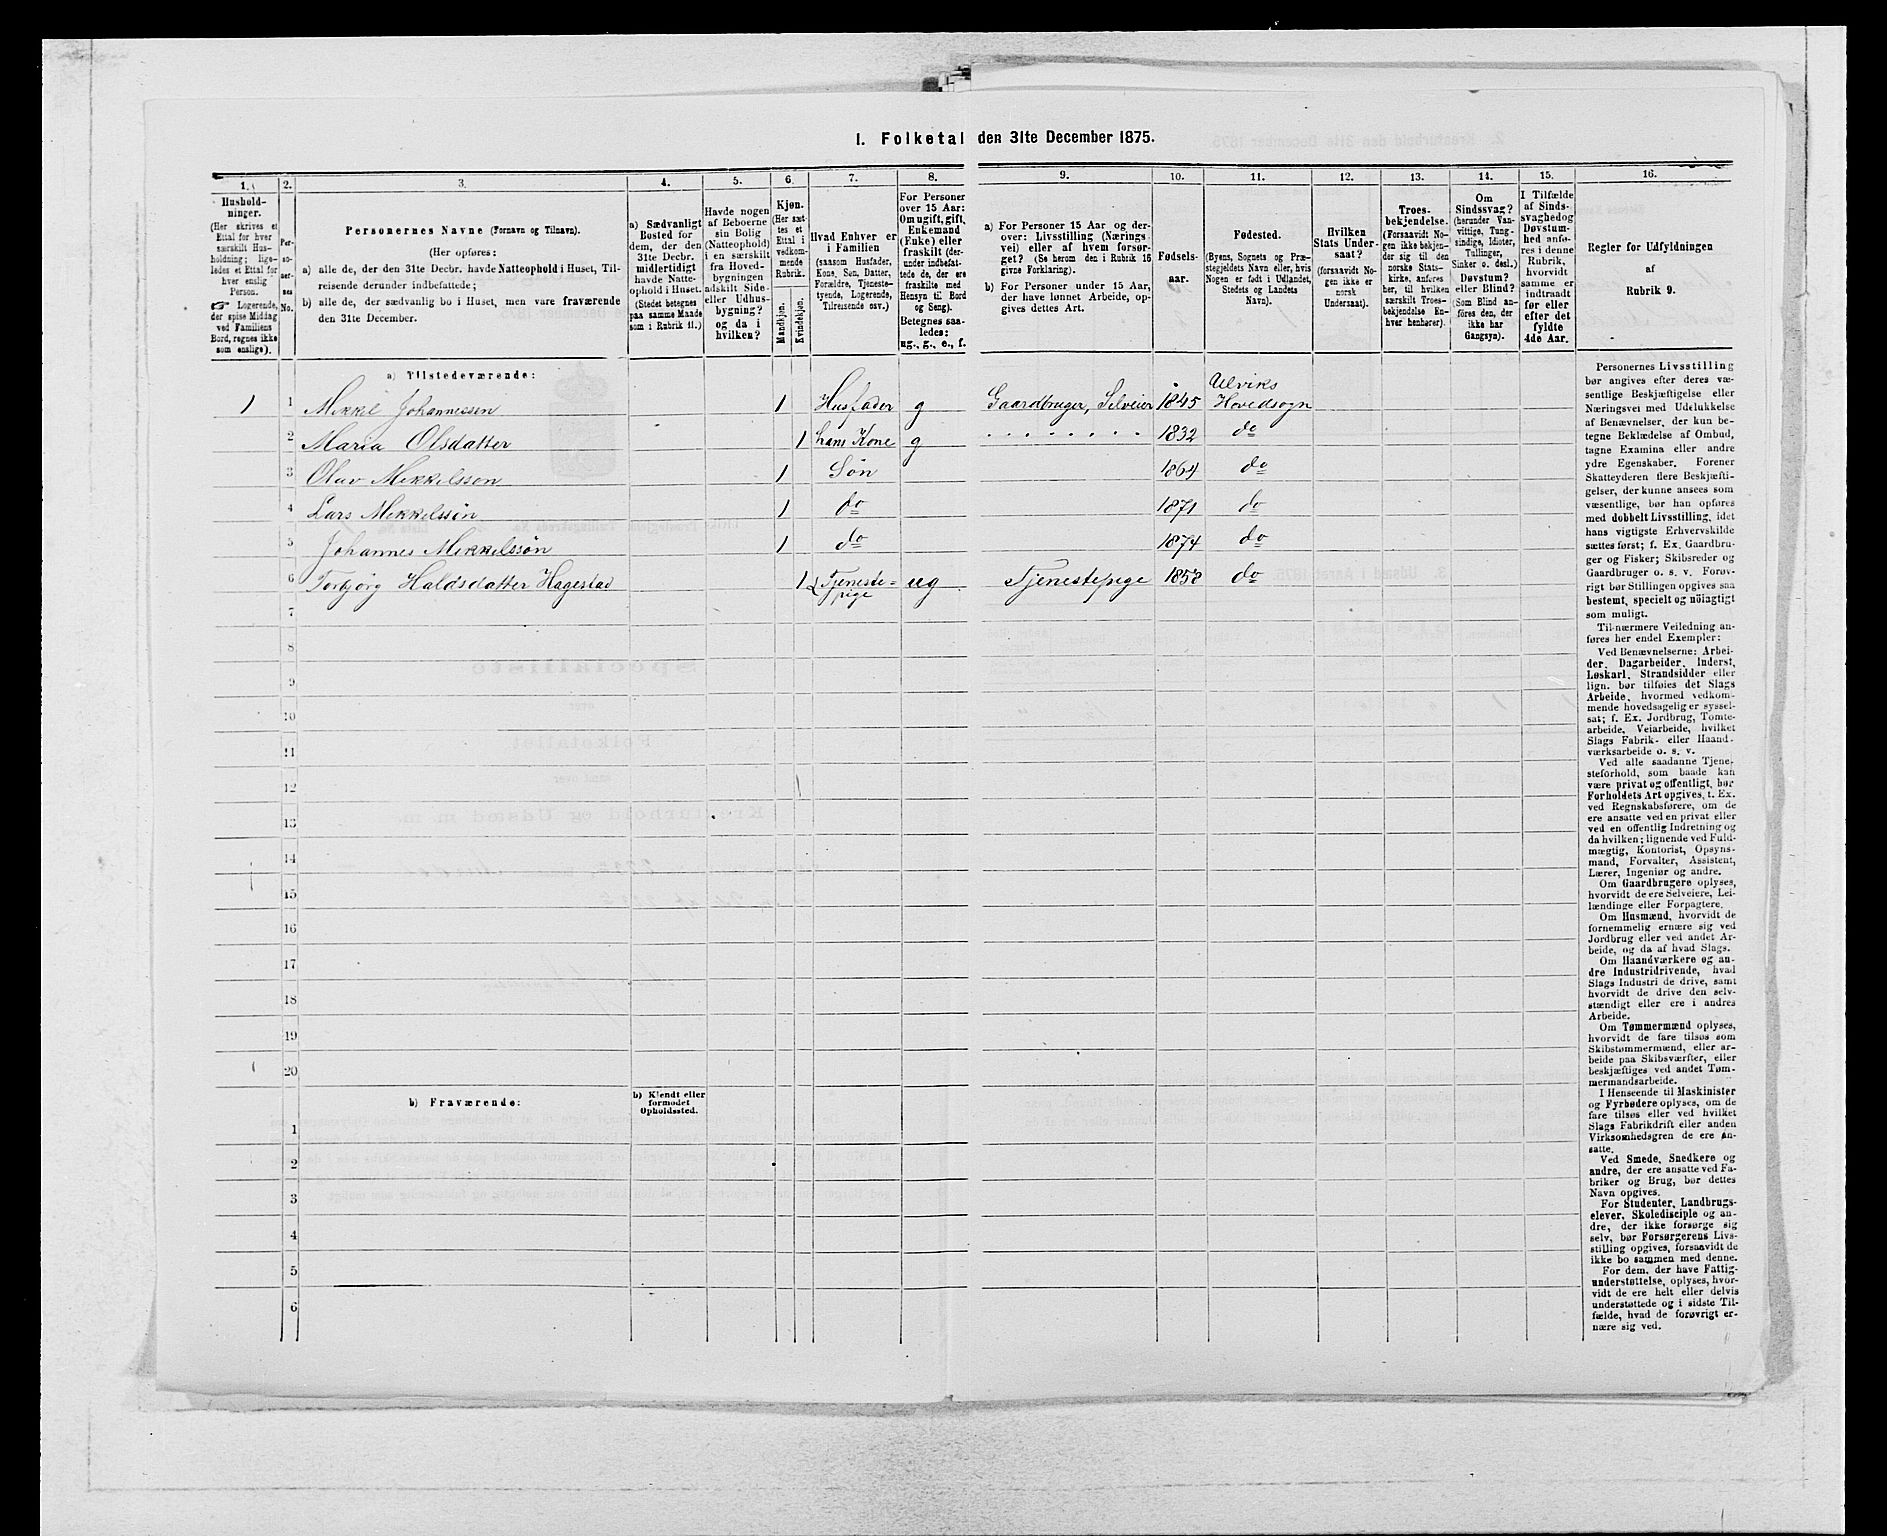 I. Folketal den 31te December 1875.
1. 2. 3. 4. 5. 6. 7. 8. 9. 10. 11. 12. 13. 14. 15. 16.
Hushold-
ninger.
(Her skrives et
Ettal for hver
særskilt Hus-
holdning; lige-
ledes et Ettal for
hver enslig
Person.
☞ Logerende,
der spise Middag
ved Familiens
Bord, regnes ikke
som enslige).
Per-
so-
ner-
nes
No.
Personernes Navne (Fornavn og Tilnavn).
(Her opføres:
a) alle de, der den 31te Decbr. havde Natteophold i Huset, Til-
reisende derunder indbefattede;
b) alle de, der sædvanlig bo i Huset, men vare fraværende
den 31te December.
a) Sædvanligt
Bosted for
dem, der den
31te Decbr.
midlertidigt
havde Natte-
ophold i Huset.
(Stedet betegnes
paa samme Maade
som i Rubrik 11.)
Havde nogen
af Beboerne
sin Bolig
(Natteophold)
i en særskilt
fra Hoved-
bygningen
adskilt Side-
eller Udhus-
bygning?
og da i
hvilken?
Kjøn.
(Her sæt-
tes et
Ettal i
vedkom-
mende
Rubrik.
Mandkjøn.
Kvindekjøn.
Hvad Enhver er
i Familien
(saasom Husfader,
Kone, Søn, Datter,
Forældre, Tjeneste-
tyende, Logerende,
Tilreisende osv.)
For Personer
over 15 Aar:
Om ugift, gift,
Enkemand
(Enke) eller
fraskilt (der-
under indbefat-
tede de, der ere
fraskilte med
Hensyn til Bord
og Seng).
Betegnes saa-
ledes:
ug., g., e., f.
a) For Personer 15 Aar og der-
over: Livsstilling (Nærings-
vei) eller af hvem forsør-
get? (Se herom den i Rubrik 16
givne Forklaring).
b) For Personer under 15 Aar,
der have lønnet Arbeide, op-
gives dettes Art.
Fødsels-
aar.
Fødested.
(Byens, Sognets og Præ-
stegjeldets Navn eller, hvis
Nogen er født i Udlandet,
Stedets og Landets
Navn).
Hvilken
Stats Under-
saat?
(forsaavidt No-
gen ikke er
norsk
Undersaat).
Troes-
bekjendelse.
(Forsaavidt No-
gen ikke bekjen-
der sig til den
norske Stats-
kirke, anføres
her, til hvilken
særskilt Troes-
bekjendelse En-
hver henhører).
Om
Sindssvag?
(herunder Van-
vittige, Tung-
sindige, Idioter,
Tullinger,
Sinker o. desl.)
Døvstum?
eller Blind?
(Som Blind an-
føres den, der
ikke har
Gangsyn).
I Tilfælde
af Sinds-
svaghed og
Døvstum-
hed anfø-
res i denne
Rubrik,
hvorvidt
samme er
indtraadt
før eller
efter det
fyldte
4de Aar.
Regler for Udfyldningen
af
Rubrik 9.
a) Tilstedeværende:
1 1 Mikkel Johannessen 1 Husfader g Gaardbruger, Selveier 1845 Ulviks Hovedsogn
2 Maria Olsdatter 1 hans Kone g 1832 do
3 Olav Mikkelsson 1 Søn 1864 do
4 Lars Mikkelssøn 1 do 1871 do
5 Johannes Mikkelssøn 1 do 1874 do
6 Torbjørg Haldsdatter Hagestad 1 Tjeneste-
pige ug Tjenestepige 1858 do
7
8
9
10
11
12
13
14
15
16
17
18
19
20
b) Fraværende:
b) Kjendt eller
formodet
Opholdssted.
1
2
3
4
5
6
Personernes Livsstilling
bør angives efter deres væ-
sentlige Beskjæftigelse eller
Næringsvei med Udelukkelse
af Benævnelser, der kun be-
tegne Beklædelse af Ombud,
tagne Examina eller andre
ydre Egenskaber. Forener
Skatteyderen flere Beskjæfti-
gelser, der kunne ansees som
væsentlige, bør han opføres
med dobbelt Livsstilling, idet
hans vigtigste Erhvervskilde
sættes først; f. Ex. Gaardbru-
ger og Fisker; Skibsreder og
Gaardbruger o. s. v. Forøv-
rigt bør Stillingen opgives saa
bestemt, specielt og nöiagtigt
som muligt.
Til nærmere Veiledning an-
føres her endel Exempler:
Ved Benævnelserne: Arbei-
der, Dagarbeider, Inderst,
Løskarl, Strandsidder eller
lign. bør tilføies det Slags
Arbeide, hvormed vedkom-
mende hovedsagelig er syssel-
sat; f. Ex. Jordbrug, Tomte-
arbeide, Veiarbeide, hvilket
Slags Fabrik- eller Haand-
værksarbeide o. s. v.
Ved alle saadanne Tjene-
steforhold, som baade kan
være privat og offentligt, bør
Forholdets Art opgives, t. Ex.
ved Regnskabsførere, om de
ere ansatte ved en privat eller
ved en offentlig Indretning og
da hvilken; lignende ved Fuld-
mægtig, Kontorist, Opsyns-
mand, Forvalter, Assistent,
Lærer, Ingeniør og andre.
Om Gaardbrugere oplyses,
hvorvidt de ere Selveiere, Lei-
lændinge eller Forpagtere.
Om Husmænd, hvorvidt de
fornemmelig ernære sig ved
Jordbrug eller ved andet Ar-
beide, og da af hvad Slags.
Om Haandværkere og an-
dre Industridrivende, hvad
Slags Industri de drive, samt
hvorvidt de drive den selv-
stændigt eller ere i andres
Arbeide.
Om Tømmermænd oplyses,
hvorvidt de fare tilsøs som
Skibstømmermænd, eller ar-
beide paa Skibsværfter, eller
beskjæftiges ved andet Tøm-
mermandsarbeide.
I Henseende til Maskinister
og Fyrbødere oplyses, om de
fare tilsøs eller ved hvilket
Slags Fabrikdrift eller anden
Virksomhedsgren de ere an-
satte.
Ved Smede, Snedkere og
andre, der ere ansatte ved Fa-
briker og Brug, bør dettes
Navn opgives.
For Studenter, Landbrugs-
elever, Skoledisciple og an-
dre, der ikke forsørge sig
selv, bør Forsørgerens Livs-
stilling opgives, forsaavidt de
ikke bo sammen med denne.
For dem, der have Fattig-
understøttelse, oplyses, hvor-
vidt de ere helt eller delvis
understøttede og i sidste Til-
fælde, hvad de forøvrigt er-
nære sig ved.